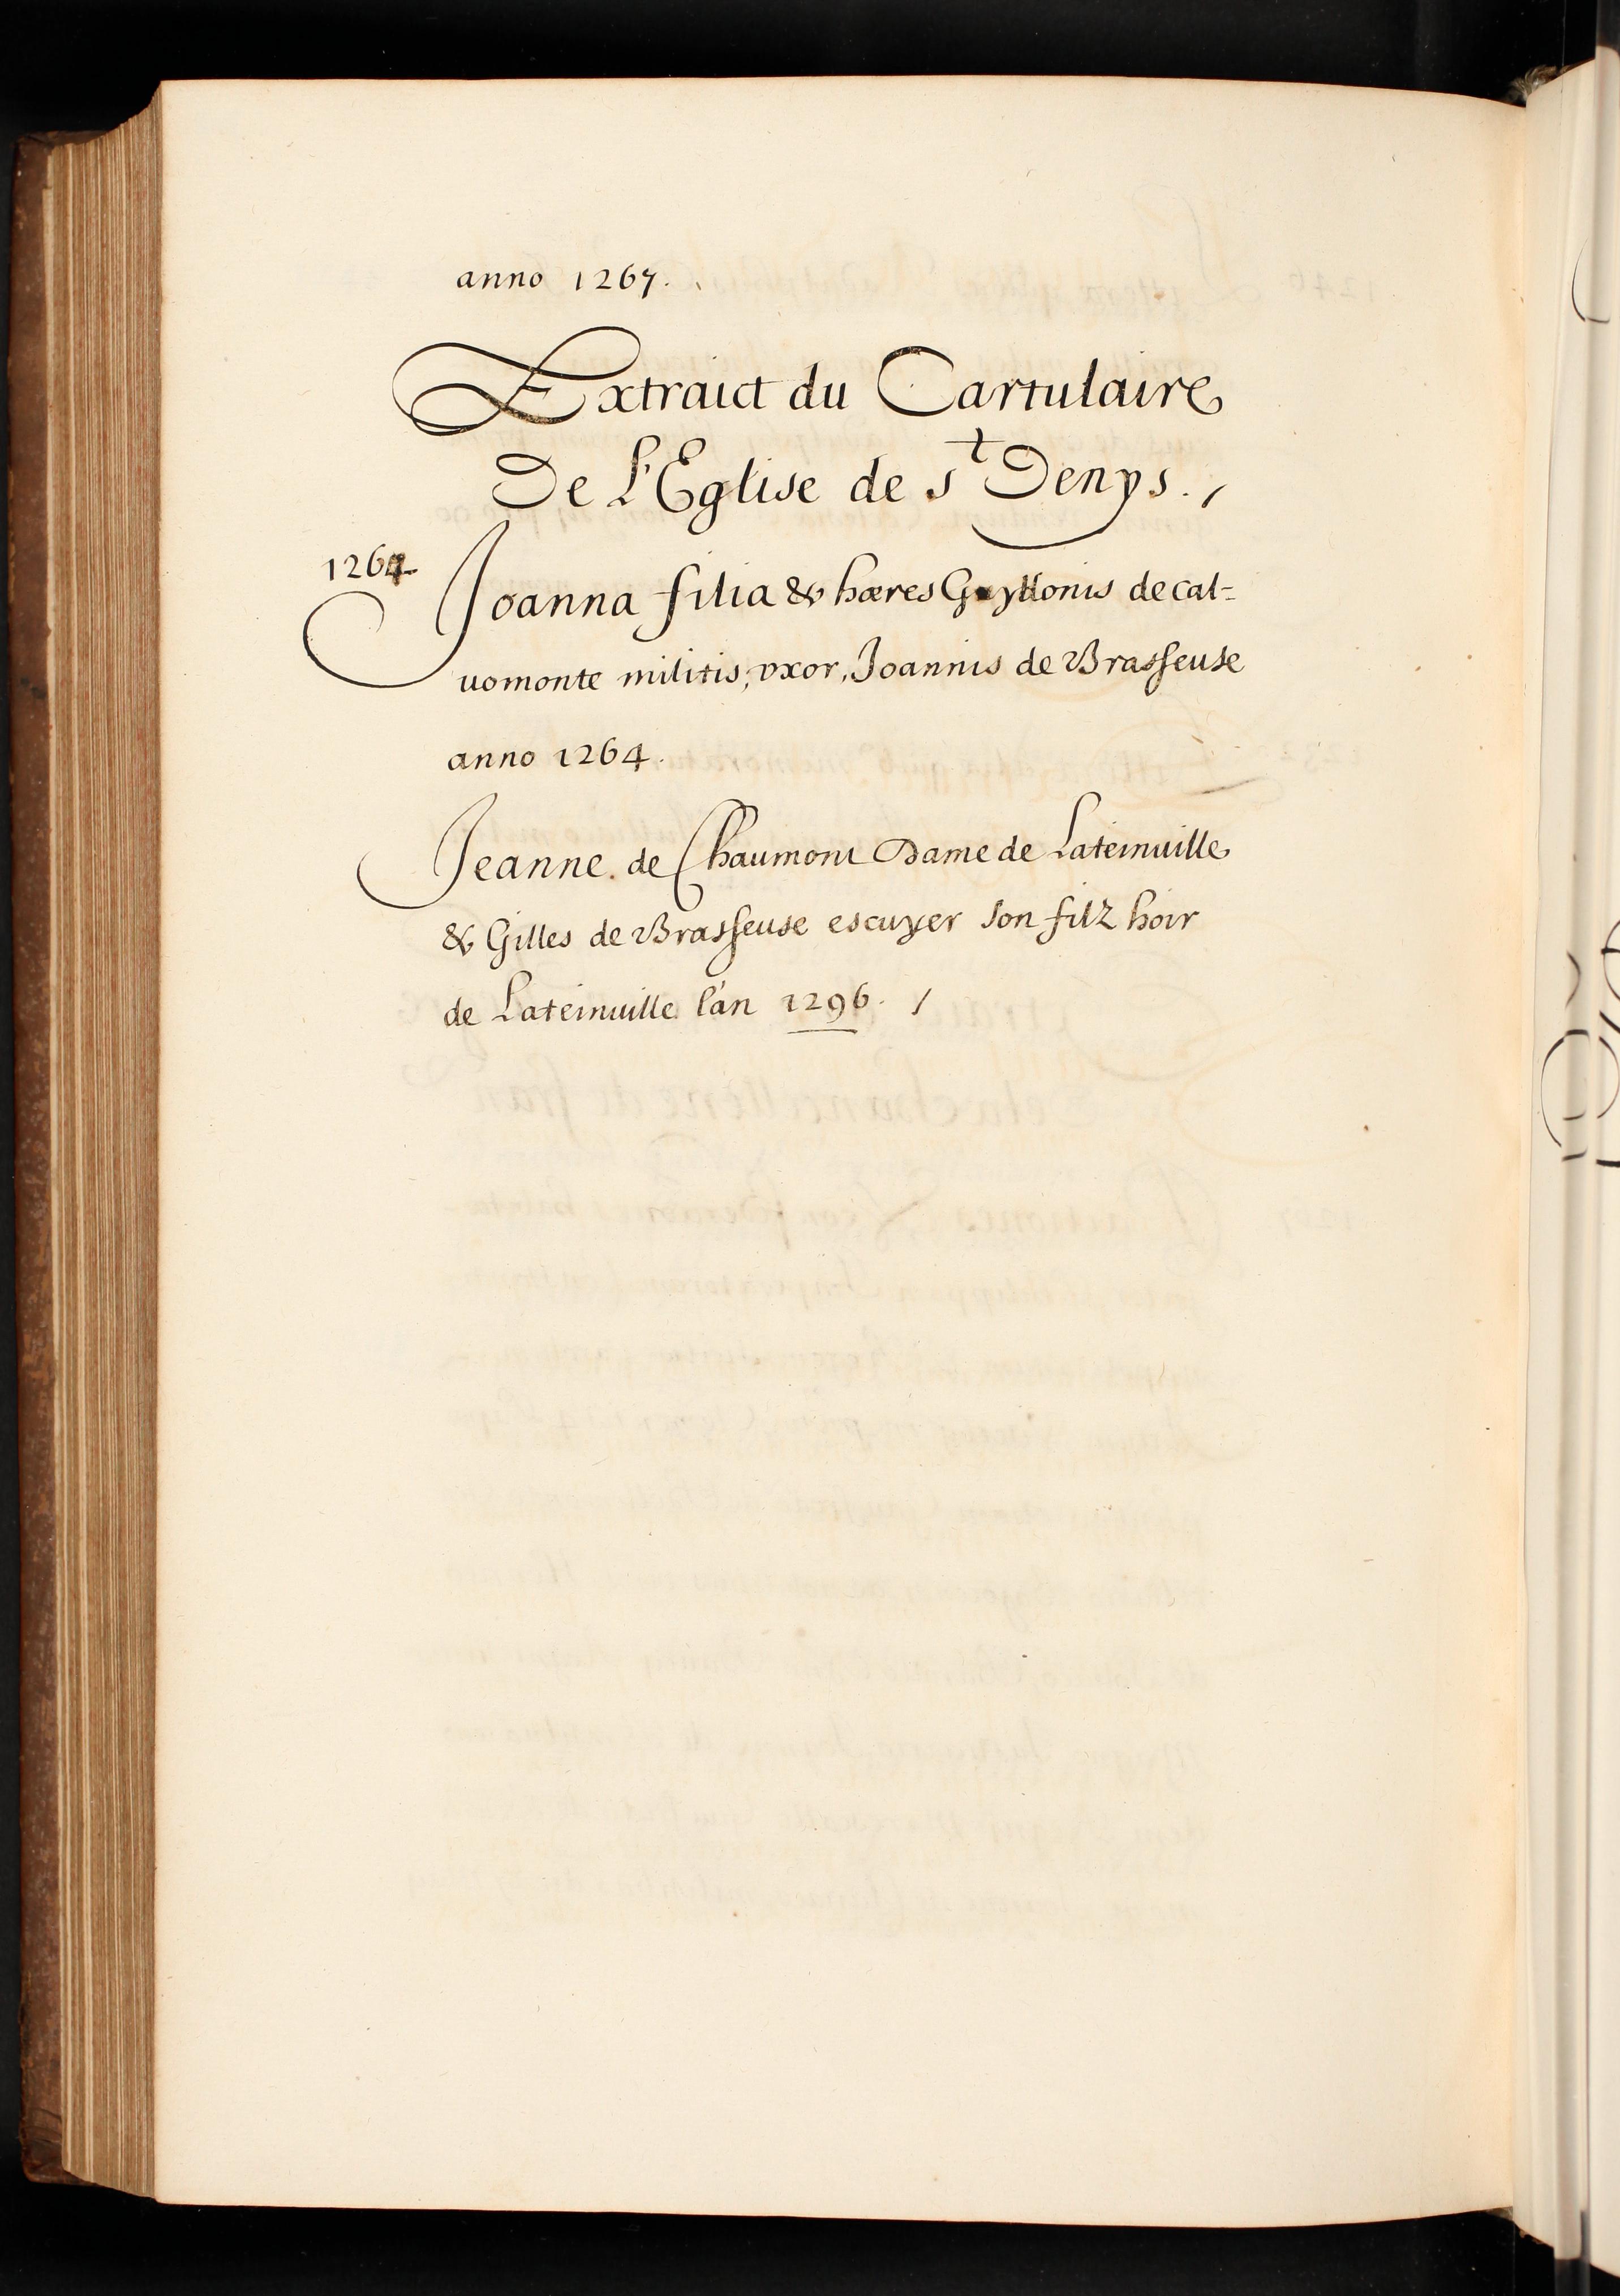 anno 1267.
Extraict du Cartulaire
De L'Eglise de st Denys. /
1264
Joanna filia & hæres Guyllonis de cal=
uomonte militis, vxor, Joannis de Brasseuse
anno 1264.
Jeanne. de Chaumont Dame de Lateinuille
& Gilles de Brasseuse escuyer son filz hoir
de Lateinuille l'an 1296. /